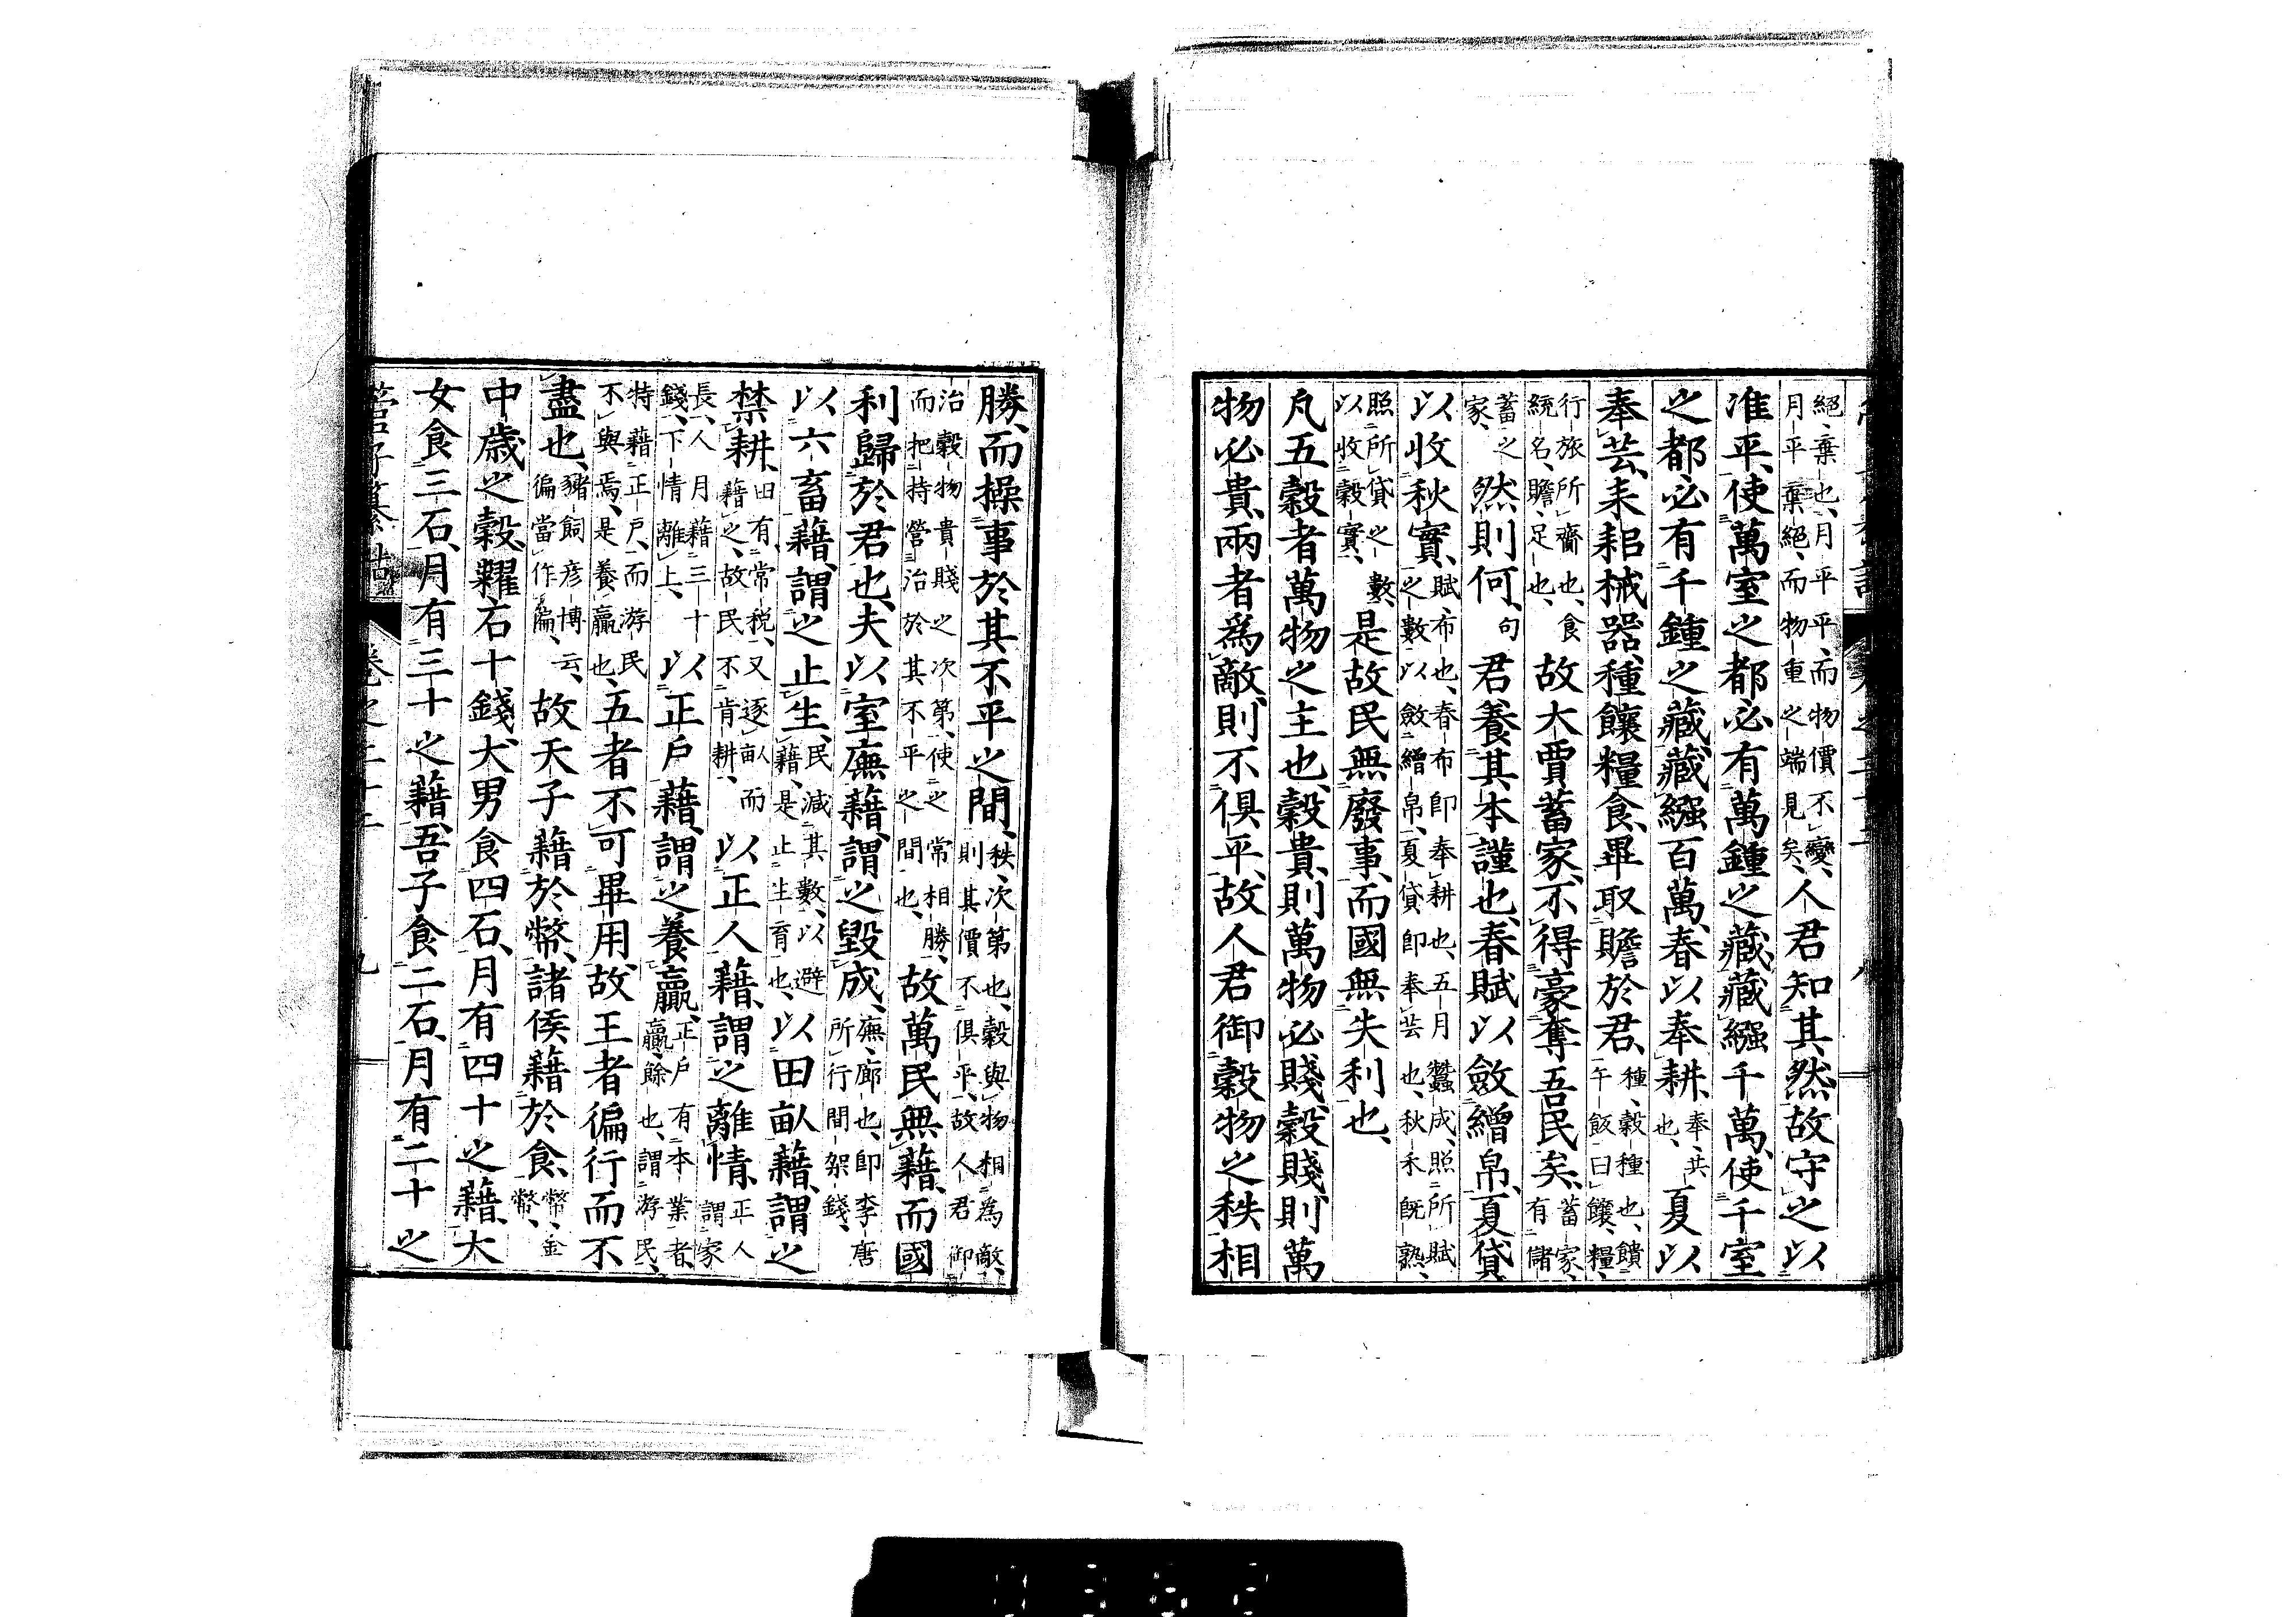 絕、棄也、月平平、而物價不變、月平棄絕、而物重之端見矣、人君知其然、故守之以
准平、使萬室之都、必有萬鍾之藏、藏繦千萬、使千室
之都、必有千鍾之藏、藏繦百萬、春以奉耕、奉、共也、夏以
奉芸、耒耜械器、種饟糧食、畢取贍於君、種、穀種也、饋午飯曰饟、糧、
行旅所齎也、食統名、贍、足也、故大賈蓄家、不得豪奪吾民矣、蓄家、有儲
蓄之家、然則何、句君養其本謹也、春賦以斂繒帛、夏貸
以收秋實、賦、布也、春布即奉耕也、五月蠶成、照所賦之數、以斂繒帛、夏貸即奉芸也、秋禾既熟、
照所貸之數、以收穀實、是故民無廢事、而國無失利也、
凡五穀者、萬物之主也、穀貴、則萬物必賤、穀賤、則萬
物必貴、兩者爲敵、則不俱平、故人君御穀物之秩相
勝、而操事於其不平之間、秩、次第也、穀與物相為敵、則其價不俱平、故人君御
治穀物貴賤之次第、使之常相勝、而把持營治於其不平之間也、故萬民無藉、而國
利歸於君也、夫以室廡藉、謂之毀成、廡、廊也、即李唐所行間架錢、
以六畜藉、謂之止生、民減其數、以避藉、是止生育也、以田畝藉、謂之
禁耕、田有常税、又逐畝而藉之、故民不肯耕、以正人藉、謂之離情、正人謂家
長、人月藉三十錢、下情離上、以正戶藉、謂之養贏、正戶有本業者、贏、餘也、謂游民、
特藉正戶、而游民不與焉、是養贏也、五者不可畢用、故王者徧行而不
盡也、豬飼彦博云、徧當作偏、故天子藉於幣、諸侯藉於食、幣、金幣、
中歲之穀、糶石十錢、大男食四石、月有四十之藉、大
女食三石、月有三十之藉、吾子食二石、月有二十之
管子纂詁 卷之二十二 九